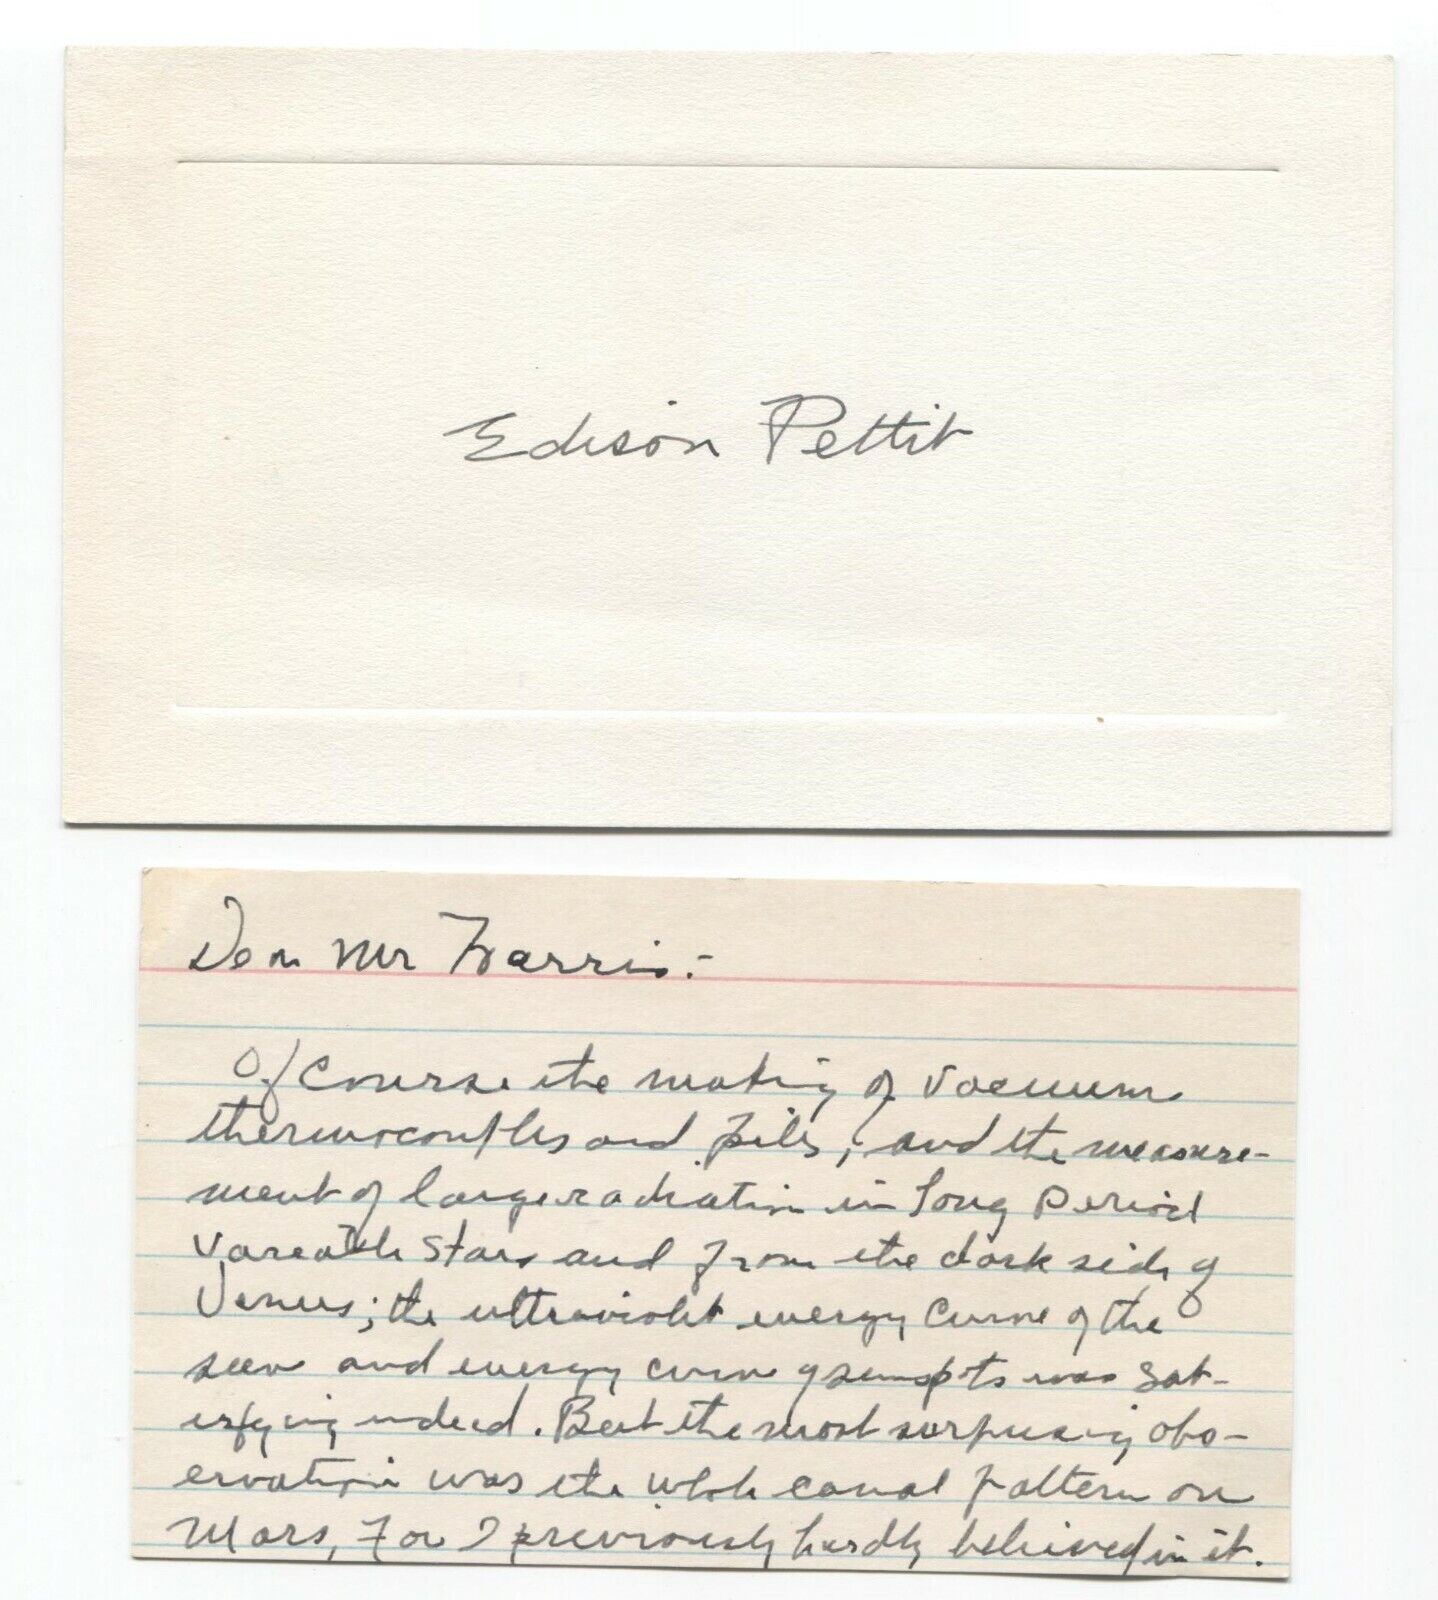 Edison Pettit
Dear Mr Farris:-
Of course the making of vacuum
thermocouples and piles; and the measure-
ment of large radiation in long period
Vareable stars and from the dark side of
Venus; the ultraviolet energy curve of the
sun and energy curve of sunspots was sat-
isfying indeed. But the most surprising obs-
ervation was the whole canal pattern on
Mars, For I previously hardly believed in it.